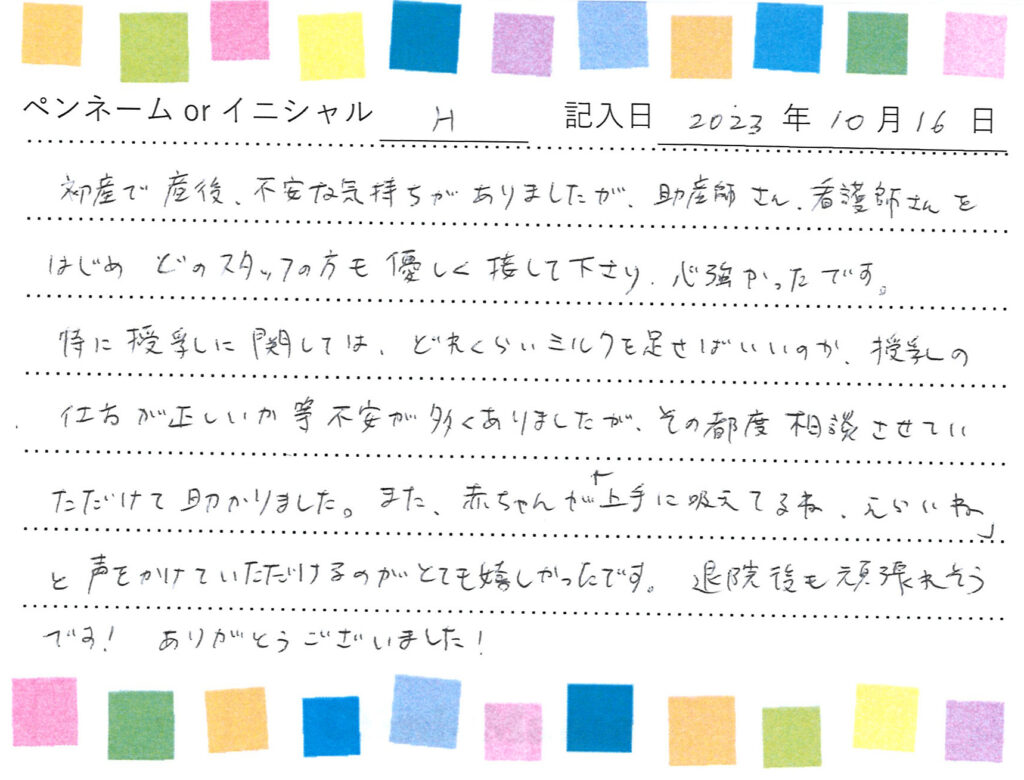 ペンネーム or イニシャル H 記入日 2023 年 10 月 16 日
初産で産後、不安な気持ちがありましたが、助産師さん、看護師さんを
はじめ どのスタッフの方も優しく接して下さり、心強かったです。
特に授乳しに関しては、どれくらいミルクを足せばいいのか、授乳しの
仕方が正しいか等不安が多くありましたが、その都度相談させてい
ただけて助かりました。また、赤ちゃんが「上手に吸えてるね、えらいね」
と声をかけていただけるのがとても嬉しかったです。退院後も頑張れそう
です! ありがとうございました!